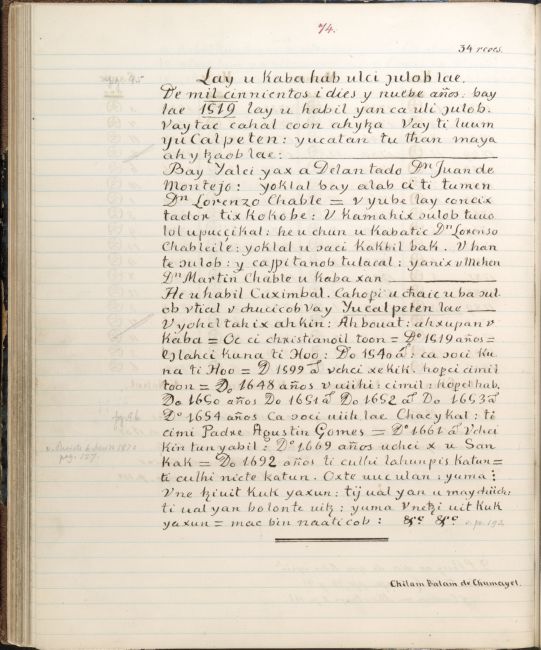 74.
34 recos.
Lay u kaba hab ulci ɔulob lae.
De mil cinnientos i dies y nuebe años: bay
lae 1519 lay u habil yan ca uli ɔulob.
Vaytac cahal coon ahyɔa. Vay ti luum
yuCalpeten: yucatan tu than maya
ah yɔaob lae:
Bay Yalci yax aDelantado Dn Juan de
Montejo: yoklal bay alab ci ti tumen
Dn Lorenzo Chable = v yube lay concix
tador tix kokobe: V kamahix ɔulob tuuo
lol upucçikal: he u chun u kabatic Dn Lorenso
Chableile: yoklal u ɔaci kakbil bak. V han
te ɔulob: y capitanob tulacal: yanix v Mehen
Dn Martin Chable u kaba xan
He u habil Cuximbal. Cahopi u chaic uba ɔul
ob vtial v chucicob vay Yucalpeten lae
V yohel tahix ahkin: Ahbouat: ahxupan v
kaba = Oc ci christianoil toon = Do 1519 años =
Eɔlahci kuna ti Hoo: Do 1540 as: ca ɔoci ku
na ti Hoo = D 1599 as vchci xekik. hopci cimil
toon = Do 1648 años v uiihi: cimil: hopel hab.
Do 1650 años Do 1651 as Do 1652 as Do 1653 as
Do 1654 años Ca ɔoci uiihlae Chacykal: ti
cimi Padre Agustin Gomes = Do 1661 as Vchci
kin tunyabil: Do 1669 años uchci x u San
Kak = Do 1692 años ti culhi lahunpis katun =
ti culhi nicte katun. Oxte uuculan: yuma:
Vne kuk yaxun: tij ual yan u
ti ual yan bolonte uitz: yuma
yaxun = mac bin naaticob: &c &c
Chilam Balam de Chumayel.